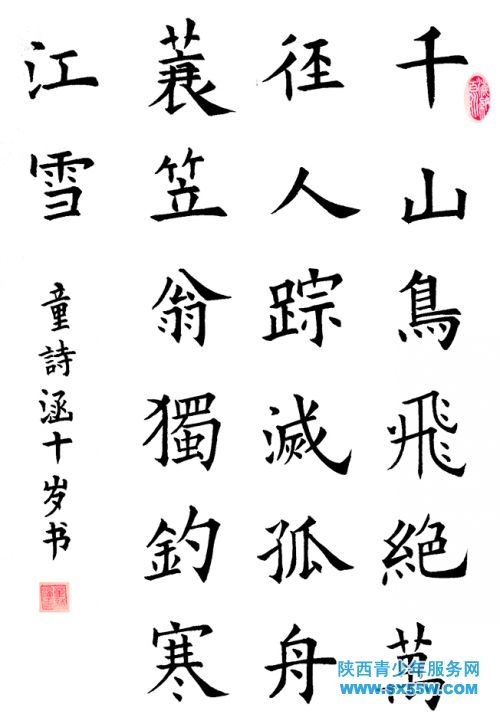 千山鳥飛絕萬
徑人踪滅孤舟
蓑笠翁獨釣寒
江雪
童詩涵十岁书
陕西青少年服务网
www.sx55w.com